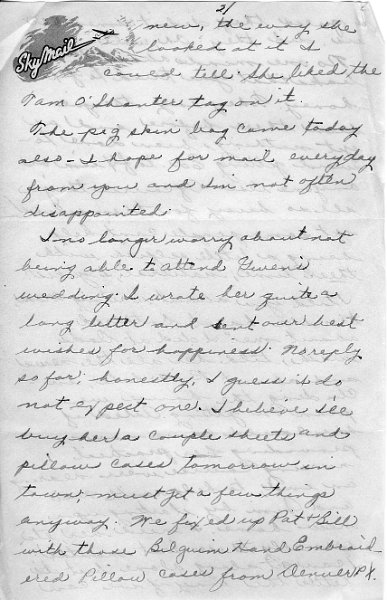 2/
Sky Mail
new, the way she
looked at it I
could tell. She liked the
Tam O'Shanter tag on it.
The pig skin bag came today
also - I hope for mail everyday
from you and I'm not often
disappointed.
I no longer worry about not
being able to attend Gwen's
wedding. I wrote her quite a
long letter and sent our best
wishes for happiness. No reply
so far, honestly, I guess I do
not expect one. I believe I'll
buy her a couple sheets and
pillow cases tomorrow in
town, must get a few things
anyway. We fixed up Pat & Bill
with those Belguim Hand Embraid-
ered Pillow cases from Denver P.X.